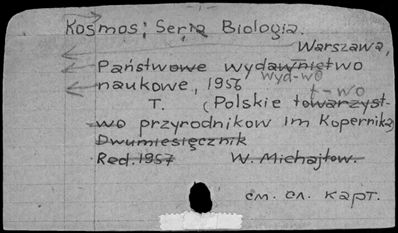 Kosmos; Seria Biologia.
Warszawa,
Państwowe wydawnictwo
wyd-wo
naukowe, 1956
t-wo
T. (Polskie towarzyst-
wo przyrodnikow im Kopernika)
Dwumiesięcznik
Red. 1957 W. Michajłow.
см. сл. карт.